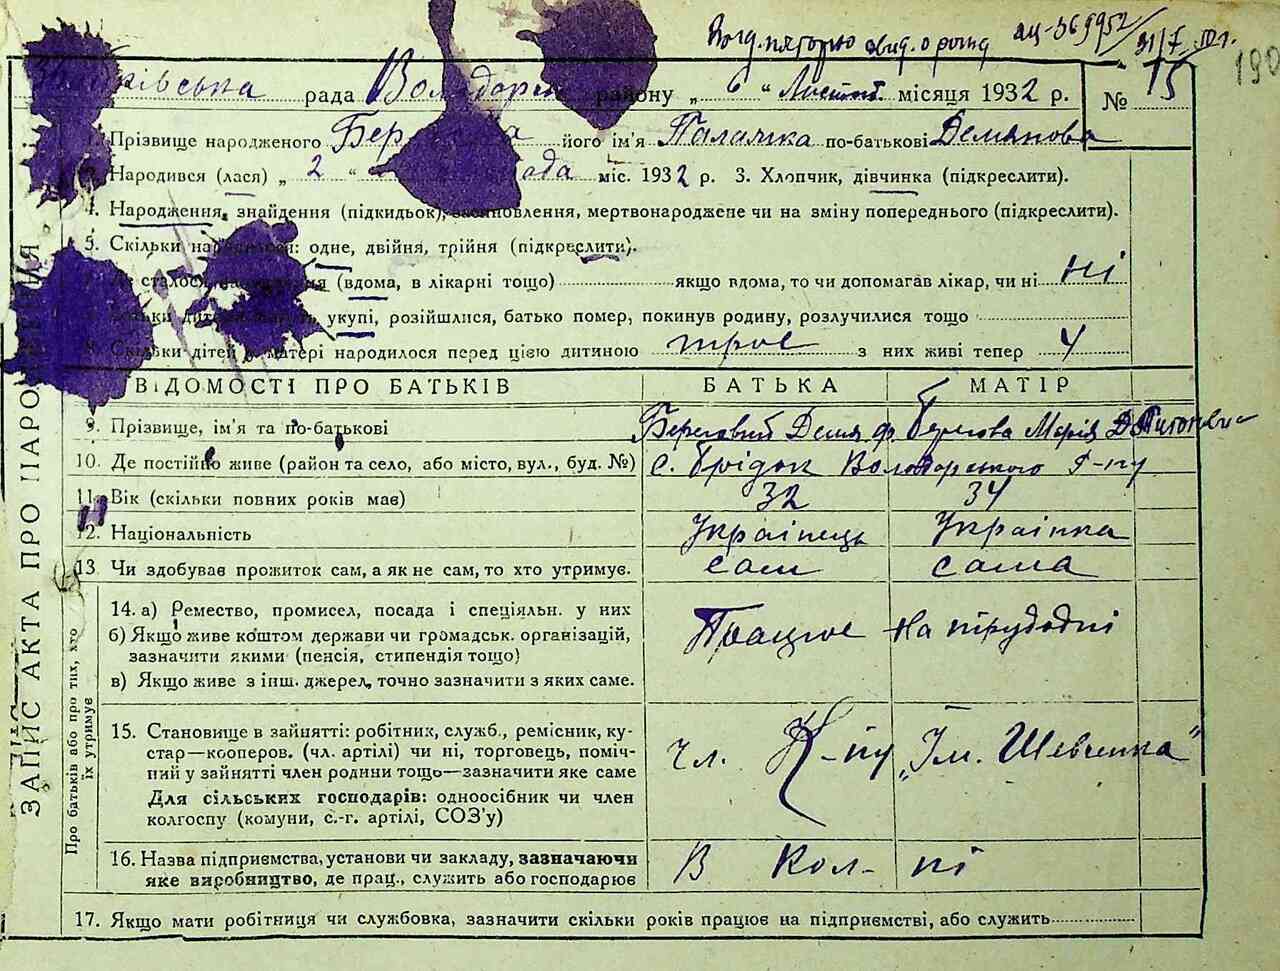 190
ЗАПИС АКТА ПРО НАРО
рада Володарс району „ 6 “ Листоп. місяця 1932 р. № 15
Прізвище народженого Бер його ім'я Палажка по-батькові Демянова
Народився (лася) „ 2 “ ада міс. 1932 р. 3. Хлопчик, дівчинка (підкреслити).
4. Народження, знайдення (підкидьок), мертвонароджене чи на зміну попереднього (підкреслити).
5. Скільки народилося: одне, двійня, трійня (підкреслити).
сталося (вдома, в лікарні тощо) якщо вдома, то чи допомагав лікар, чи ні ні
укупі, розійшлися, батько помер, покинув родину, розлучилися тощо
8. Скільки дітей у матері народилося перед цією дитиною троє з них живі тепер 4
ВІДОМОСТІ ПРО БАТЬКІВ БАТЬКА МАТІР
9. Прізвище, ім'я та по-батькові Береговий Демян Берегова Марія
10. Де постійно живе (район та село, або місто, вул., буд. №) с. Брідок Володарського р-ну
11. Вік (скільки повних років має) 32 34
12. Національність Українець Українка
13. Чи здобуває прожиток сам, а як не сам, то хто утримує. сам сама
Про батьків або про тих, хто їх утримує
14. а) Ремество, промисел, посада і спеціяльн. у них
б) Якщо живе коштом держави чи громадськ. організацій, Працює на трудодні
зазначити якими (пенсія, стипендія тощо)
в) Якщо живе з інш. джерел, точно зазначити з яких саме.
15. Становище в зайнятті: робітник, служб., ремісник, ку-
стар—кооперов. (чл. артілі) чи ні, торговець, поміч- чл. К-пу „Ім. Шевченка“
ний у зайнятті член родини тощо—зазначити яке саме
Для сільських господарів: одноосібник чи член
колгоспу (комуни, с.-г. артілі, СОЗ'у)
16. Назва підприємства, установи чи закладу, зазначаючи В кол-пі
яке виробництво, де прац., служить або господарює
17. Якщо мати робітниця чи службовка, зазначити скільки років працює на підприємстві, або служить